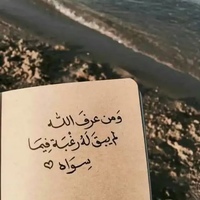 وَمن عرفَ اللّه
لم يبقَ لهُ رغْبة فِيمَا
سِوَاه ♡